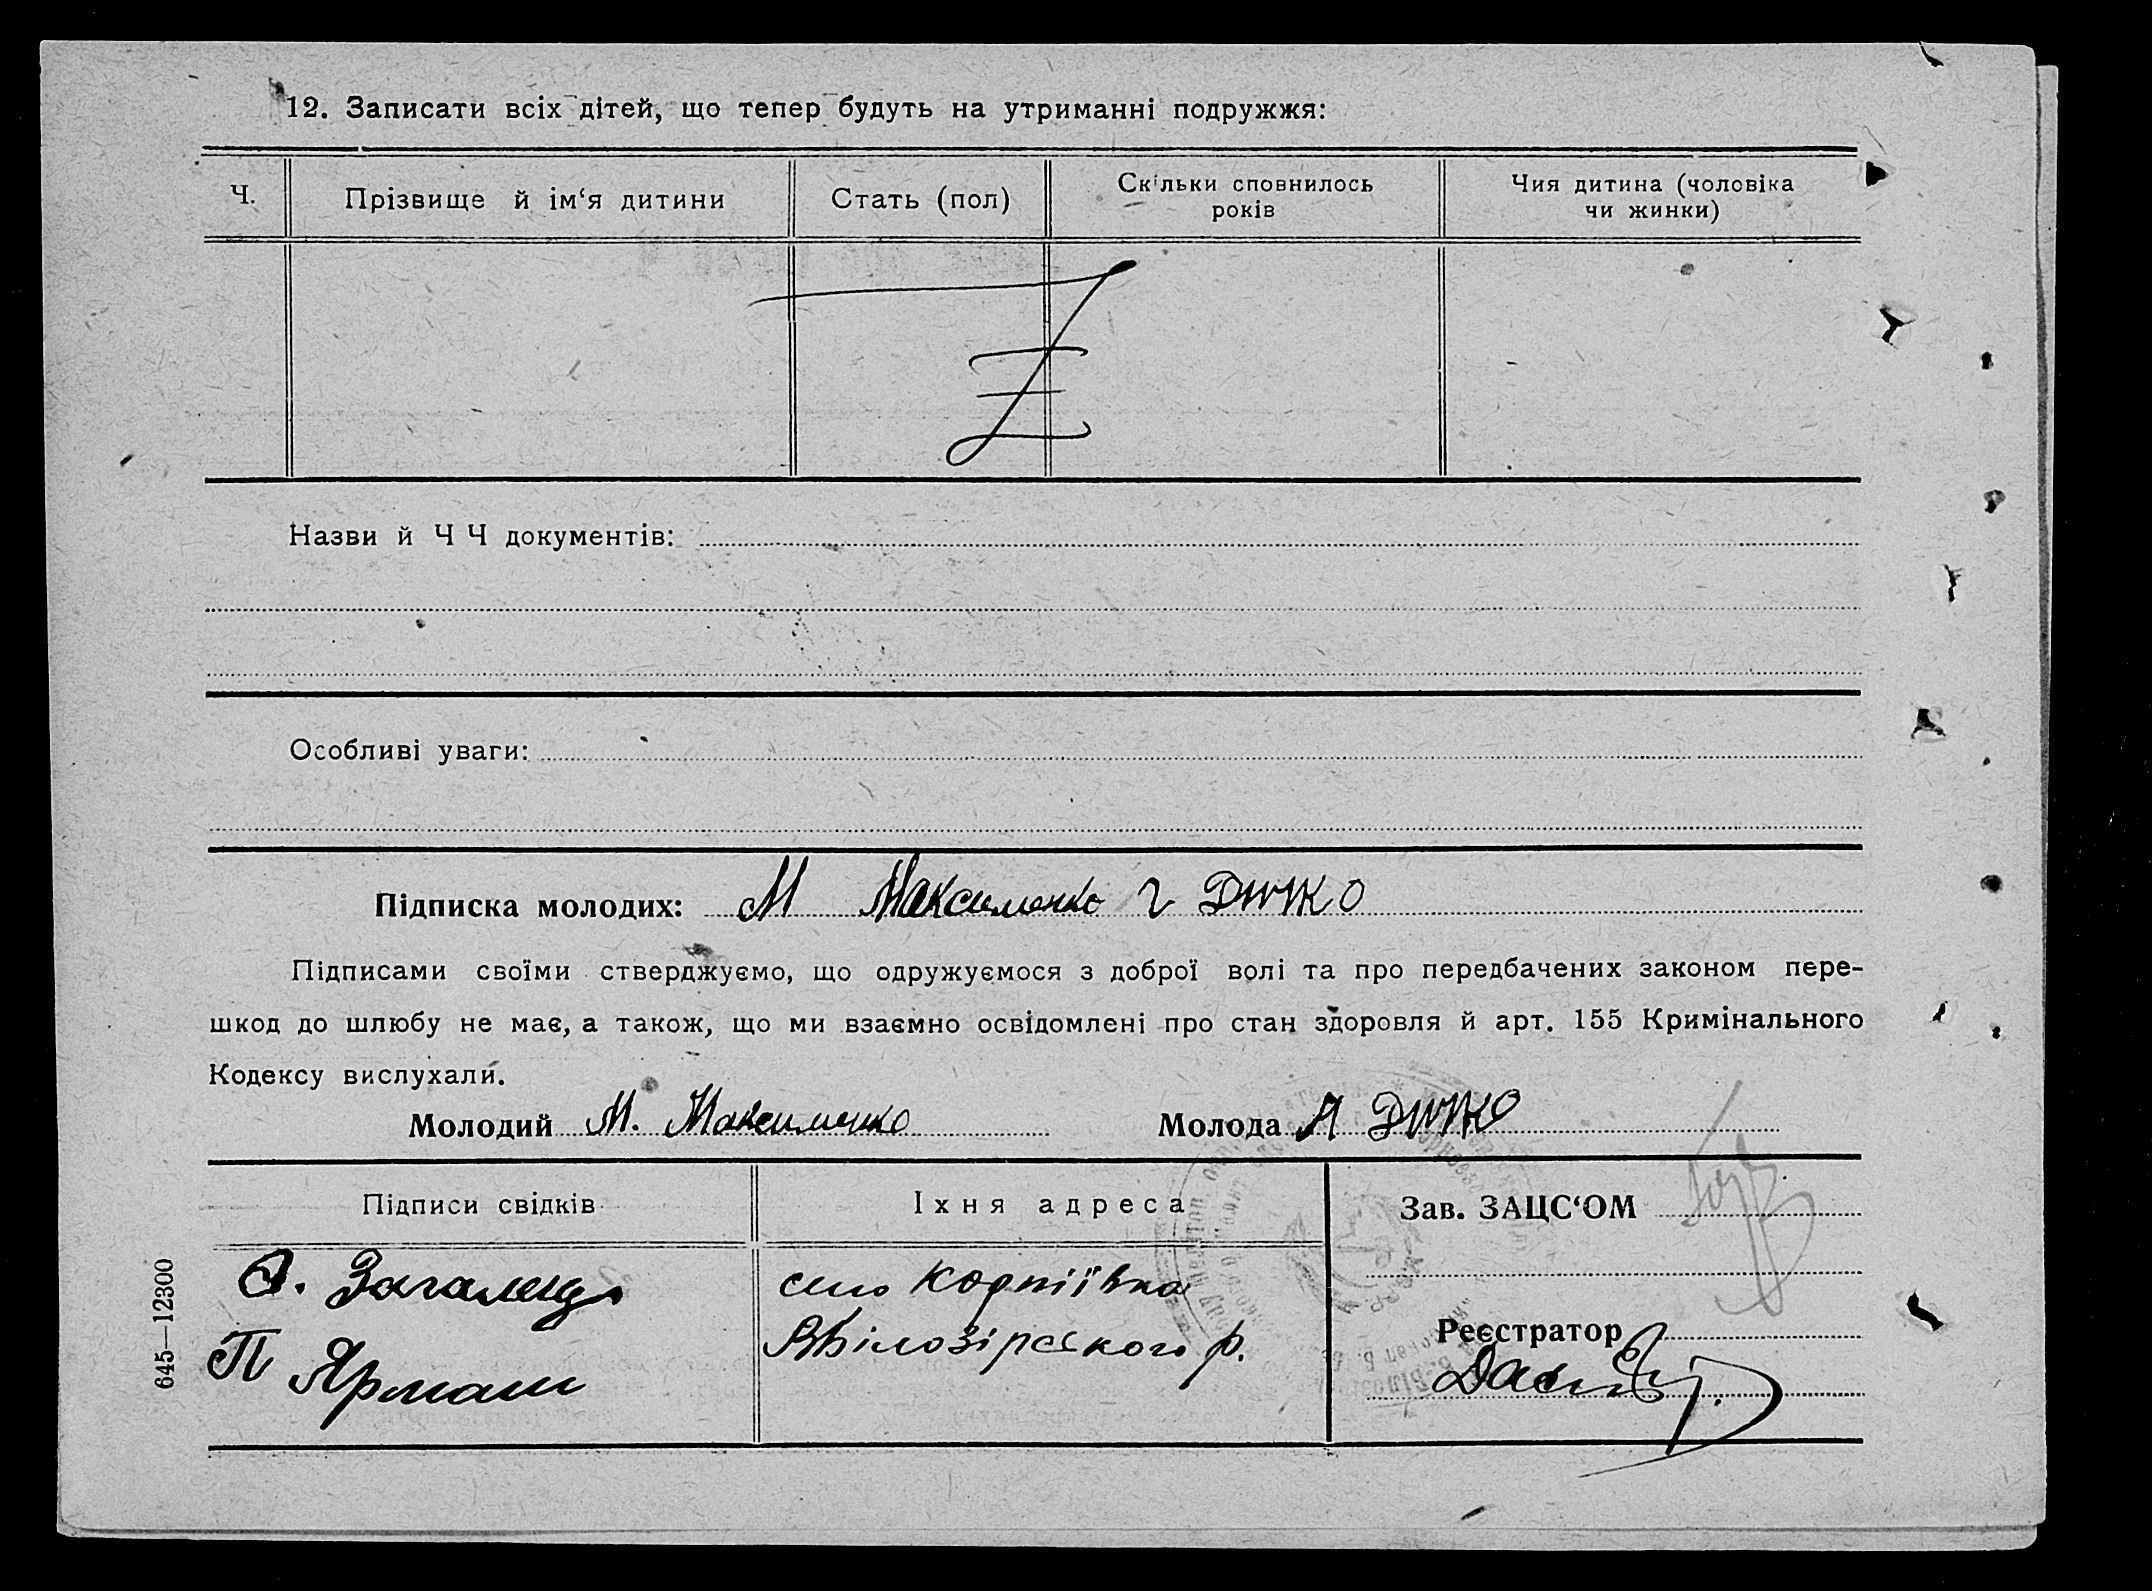 12. Записати всіх дітей, що тепер будуть на утриманні подружжя:
Ч.
Прізвище й ім‘я дитини
Стать (пол)
Скільки сповнилось
років
Чия дитина (чоловіка
чи жинки)
Назви й Ч Ч документів:
Особливі уваги:
Підписка молодих: М Максименко
Підписами своїми стверджуємо, що одружуємося з доброї волі та про передбачених законом пере-
шкод до шлюбу не має, а також, що ми взаємно освідомлені про стан здоровля й арт. 155 Кримінального
Кодексу вислухали.
Молодий М. Максименко Молода
Підписи свідків
Їхня адреса
Зав. ЗАЦС‘ОМ
село
Білозірського р.
П Ярмаш
Реєстратор
645—12300